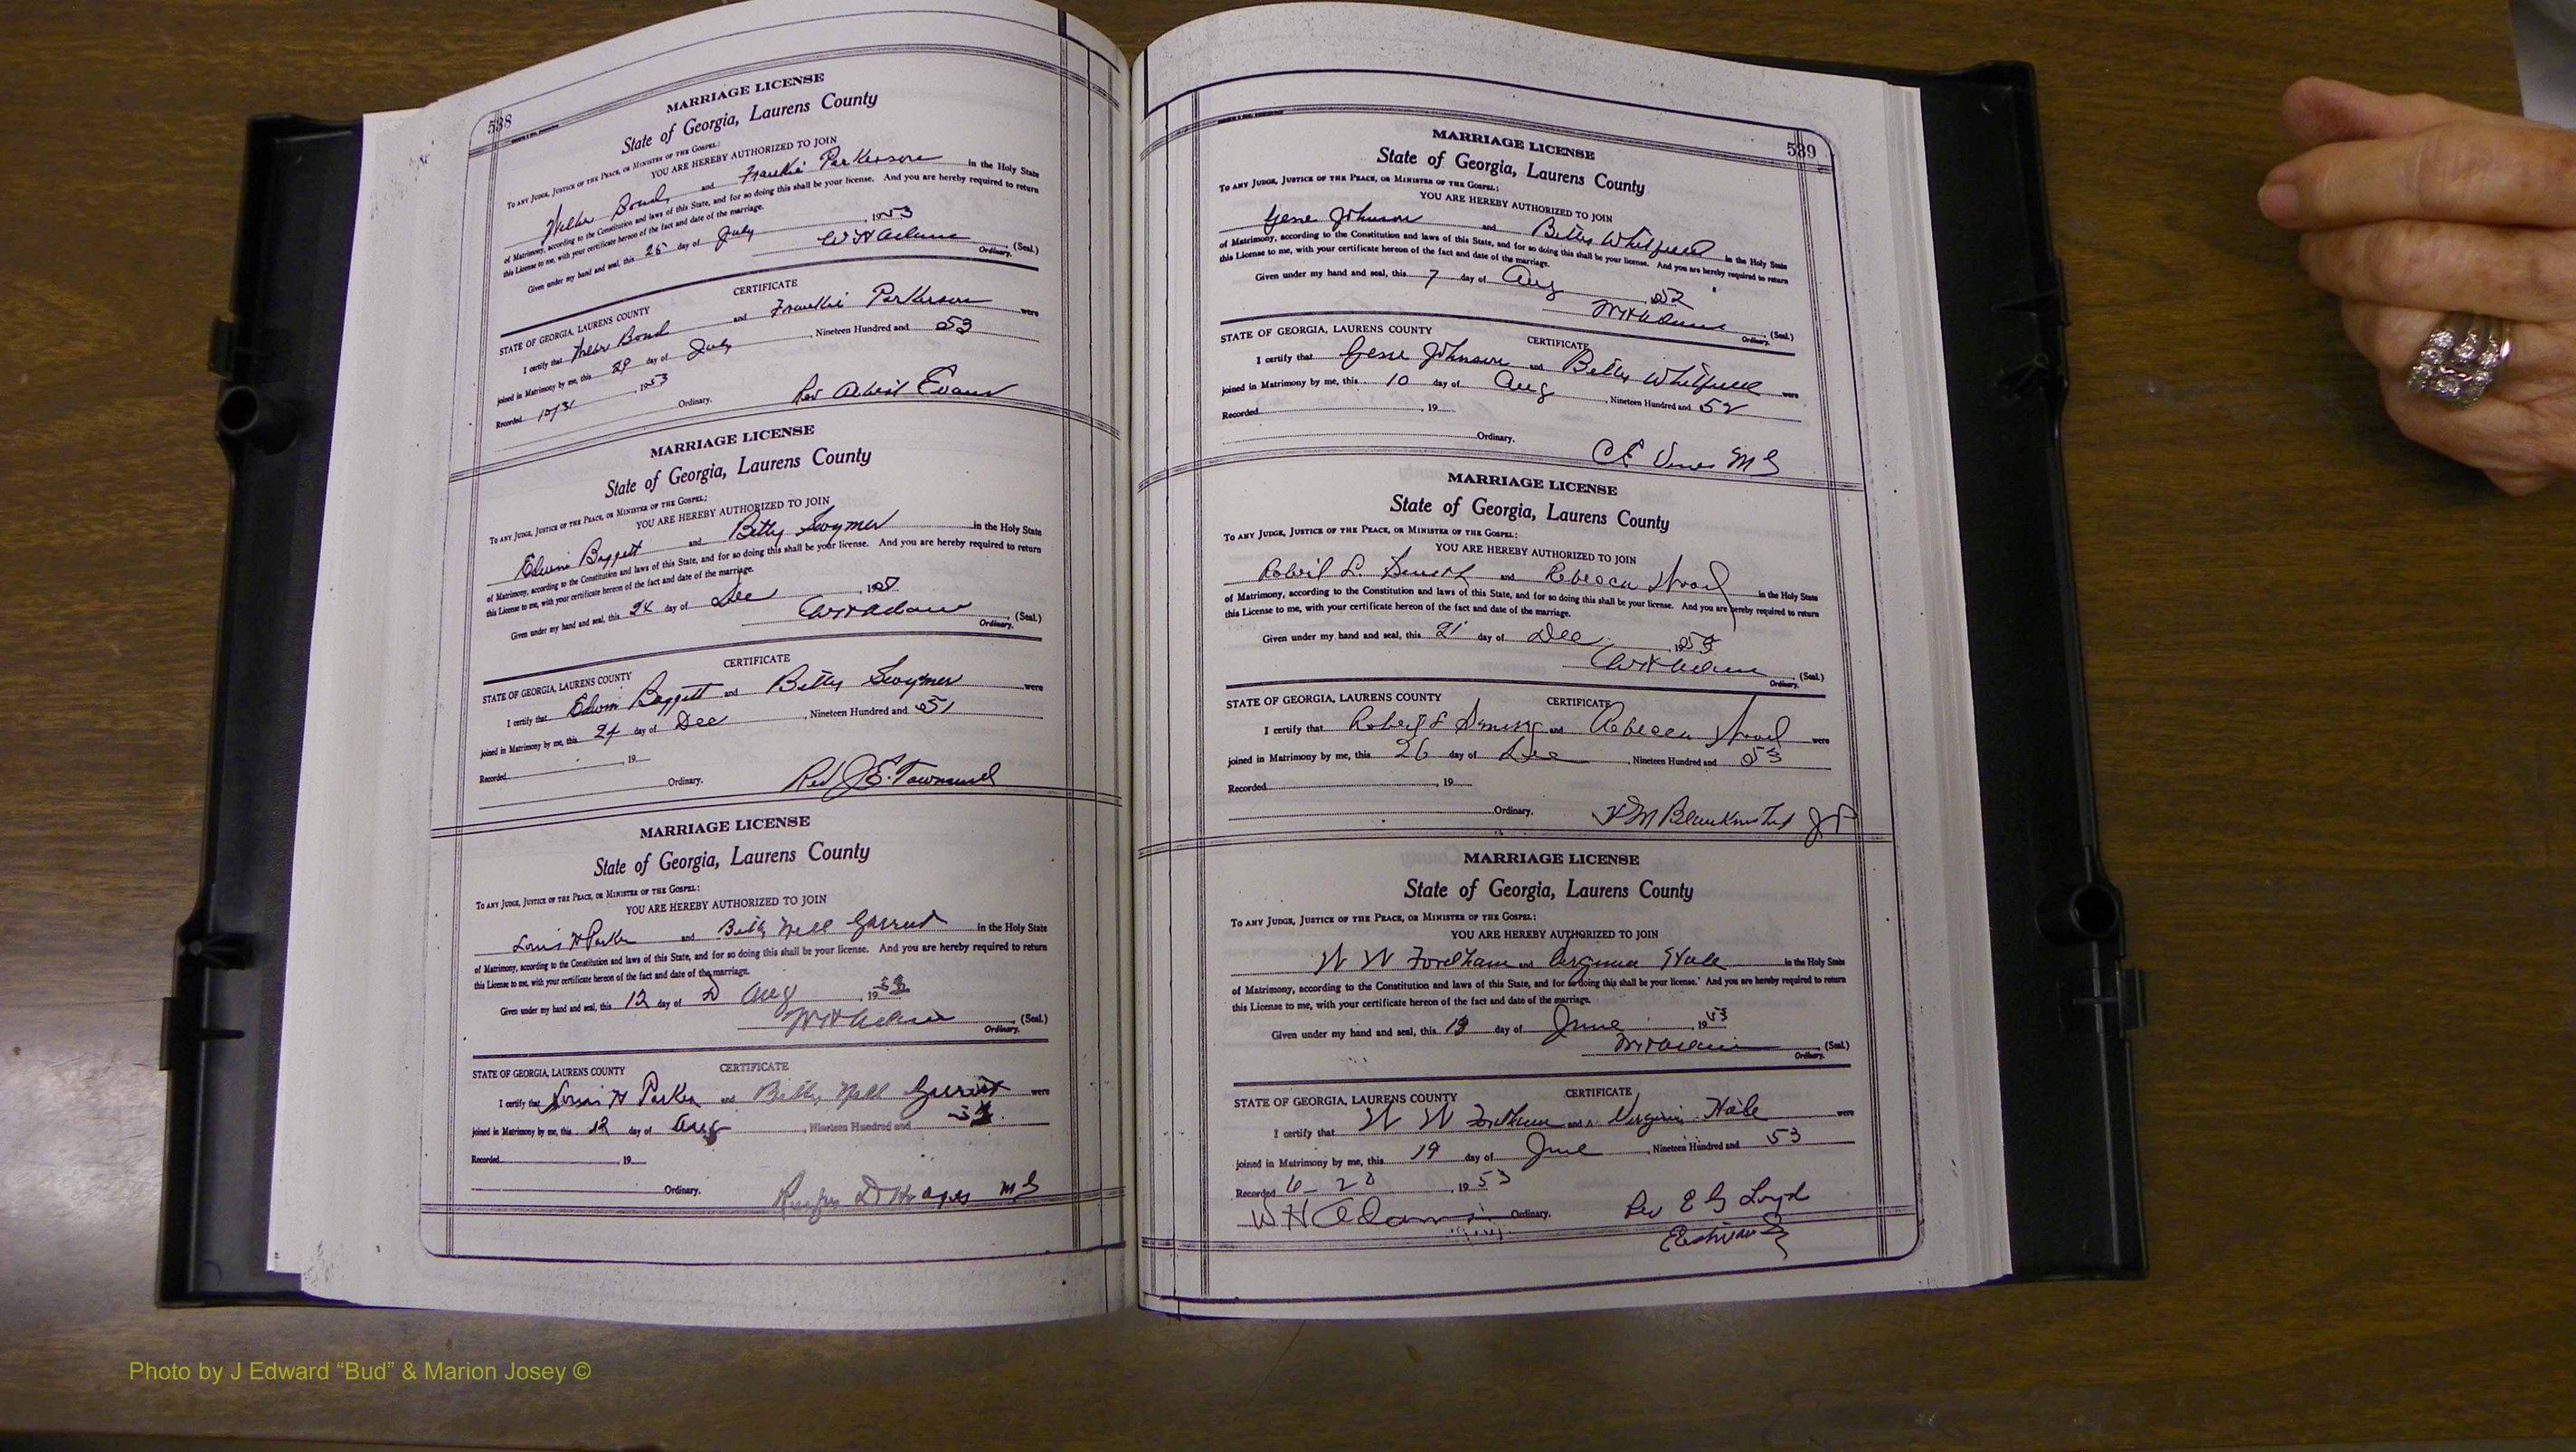 538
MARRIAGE LICENSE
State of Georgia, Laurens County
TO ANY JUDGE, JUSTICE OF THE PEACE, OR MINISTER OF THE GOSPEL:
YOU ARE HEREBY AUTHORIZED TO JOIN
Bond and Frankie Parkerson in the Holy State
of Matrimony, according to the Constitution and laws of this State, and for so doing this shall be your license. And you are hereby required to return
this License to me, with your certificate hereon of the fact and date of the marriage.
Given under my hand and seal, this 25 day of July, 1953
W H Adams (Seal.)
Ordinary.
CERTIFICATE
STATE OF GEORGIA, LAURENS COUNTY
I certify that Bond and Frankie Parkerson were
joined in Matrimony by me, this 29 day of July, Nineteen Hundred and 53
Recorded 10/31, 1953
Ordinary. Rev Evans
MARRIAGE LICENSE
State of Georgia, Laurens County
TO ANY JUDGE, JUSTICE OF THE PEACE, OR MINISTER OF THE GOSPEL:
YOU ARE HEREBY AUTHORIZED TO JOIN
Edwin Baggett and Betty Swymer in the Holy State
of Matrimony, according to the Constitution and laws of this State, and for so doing this shall be your license. And you are hereby required to return
this License to me, with your certificate hereon of the fact and date of the marriage.
Given under my hand and seal, this 24 day of Dec, 19
W H Adams (Seal.)
Ordinary.
CERTIFICATE
STATE OF GEORGIA, LAURENS COUNTY
I certify that Edwin Baggett and Betty Swymer were
joined in Matrimony by me, this 24 day of Dec, Nineteen Hundred and 51
Recorded, 19
Ordinary. Rev J E. Townsend
MARRIAGE LICENSE
State of Georgia, Laurens County
TO ANY JUDGE, JUSTICE OF THE PEACE, OR MINISTER OF THE GOSPEL:
YOU ARE HEREBY AUTHORIZED TO JOIN
Louis H Parker and Betty Nell Garrett in the Holy State
of Matrimony, according to the Constitution and laws of this State, and for so doing this shall be your license. And you are hereby required to return
this License to me, with your certificate hereon of the fact and date of the marriage.
Given under my hand and seal, this 12 day of Aug, 19
W H Adams (Seal.)
Ordinary.
CERTIFICATE
STATE OF GEORGIA, LAURENS COUNTY
I certify that Louis H Parker and Betty Nell Garrett were
joined in Matrimony by me, this 12 day of Aug, Nineteen Hundred and
Recorded, 19
Ordinary. D M G
539
MARRIAGE LICENSE
State of Georgia, Laurens County
TO ANY JUDGE, JUSTICE OF THE PEACE, OR MINISTER OF THE GOSPEL:
YOU ARE HEREBY AUTHORIZED TO JOIN
Gene Johnson and Betty Whitfield in the Holy State
of Matrimony, according to the Constitution and laws of this State, and for so doing this shall be your license. And you are hereby required to return
this License to me, with your certificate hereon of the fact and date of the marriage.
Given under my hand and seal, this 7 day of Aug, 1952
W H Adams (Seal.)
Ordinary.
STATE OF GEORGIA, LAURENS COUNTY CERTIFICATE
I certify that Gene Johnson and Betty Whitfield were
joined in Matrimony by me, this 10 day of Aug, Nineteen Hundred and 52
Recorded, 19
Ordinary. C E Vines M G
MARRIAGE LICENSE
State of Georgia, Laurens County
TO ANY JUDGE, JUSTICE OF THE PEACE, OR MINISTER OF THE GOSPEL:
YOU ARE HEREBY AUTHORIZED TO JOIN
Robert L. and Rebecca Wood in the Holy State
of Matrimony, according to the Constitution and laws of this State, and for so doing this shall be your license. And you are hereby required to return
this License to me, with your certificate hereon of the fact and date of the marriage.
Given under my hand and seal, this 21 day of Dec, 1953
W H Adams (Seal.)
Ordinary.
STATE OF GEORGIA, LAURENS COUNTY CERTIFICATE
I certify that Robert L and Rebecca Wood were
joined in Matrimony by me, this 26 day of Dec, Nineteen Hundred and 53
Recorded, 19
Ordinary. H M Blankinship J P
MARRIAGE LICENSE
State of Georgia, Laurens County
TO ANY JUDGE, JUSTICE OF THE PEACE, OR MINISTER OF THE GOSPEL:
YOU ARE HEREBY AUTHORIZED TO JOIN
W W Fordham and Virginia Hale in the Holy State
of Matrimony, according to the Constitution and laws of this State, and for so doing this shall be your license. And you are hereby required to return
this License to me, with your certificate hereon of the fact and date of the marriage.
Given under my hand and seal, this 19 day of June, 1953
W H Adams (Seal.)
Ordinary.
CERTIFICATE
STATE OF GEORGIA, LAURENS COUNTY
I certify that W W Fordham and Virginia Hale were
joined in Matrimony by me, this 19 day of June, Nineteen Hundred and 53
Recorded 6-20, 1953
W H Adams Ordinary. Rev E G Loyd
Eastman Ga
Photo by J Edward “Bud” & Marion Josey ©